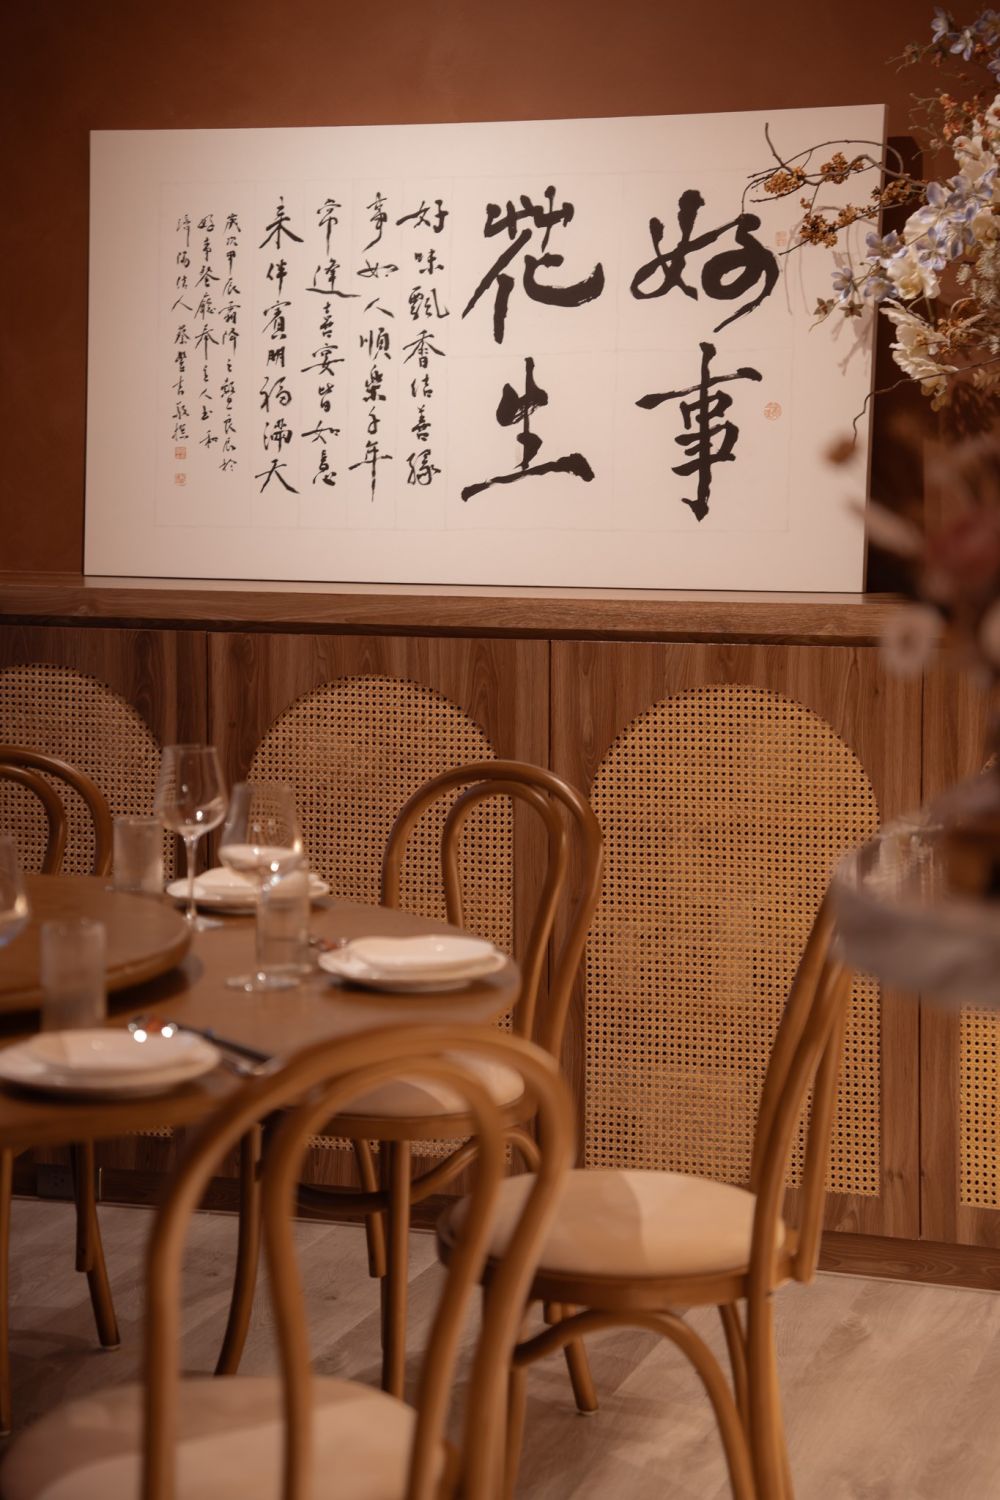 好事
花生
好味飄香结善緣
事如人順樂千年
常達喜宴皆如意
来伴賓朋福滿天
歲次甲辰霜降之良辰於
好事餐廳奉主人玉和
蔡豐吉敬撰